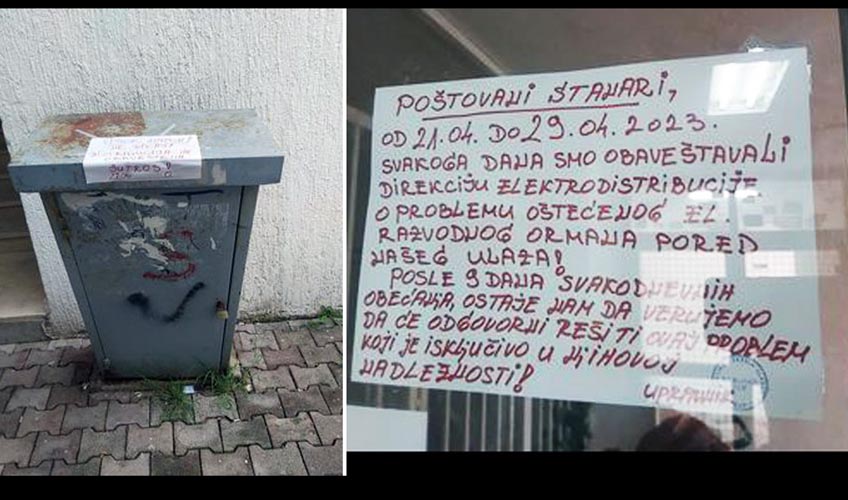 SUTROS!
POŠTOVANI STANARI,
OD 21.04. DO 29.04.2023.
SVAKOGA DANA SMO OBAVEŠTAVALI
DIREKCIJU ELEKTRODISTRIBUCIJE
O PROBLEMU OŠTEĆENOG EL.
RAZVODNOG ORMANA PORED
NAŠEG ULAZA!
POSLE 9 DANA SVAKODNEVNIH
OBEĆANJA, OSTAJE NAM DA VERUJEMO
DA ĆE ODGOVORNI REŠITI OVAJ PROBLEM
KOJI JE ISKLJUČIVO U NJIHOVOJ
NADLEŽNOSTI!
UPRAVNIK